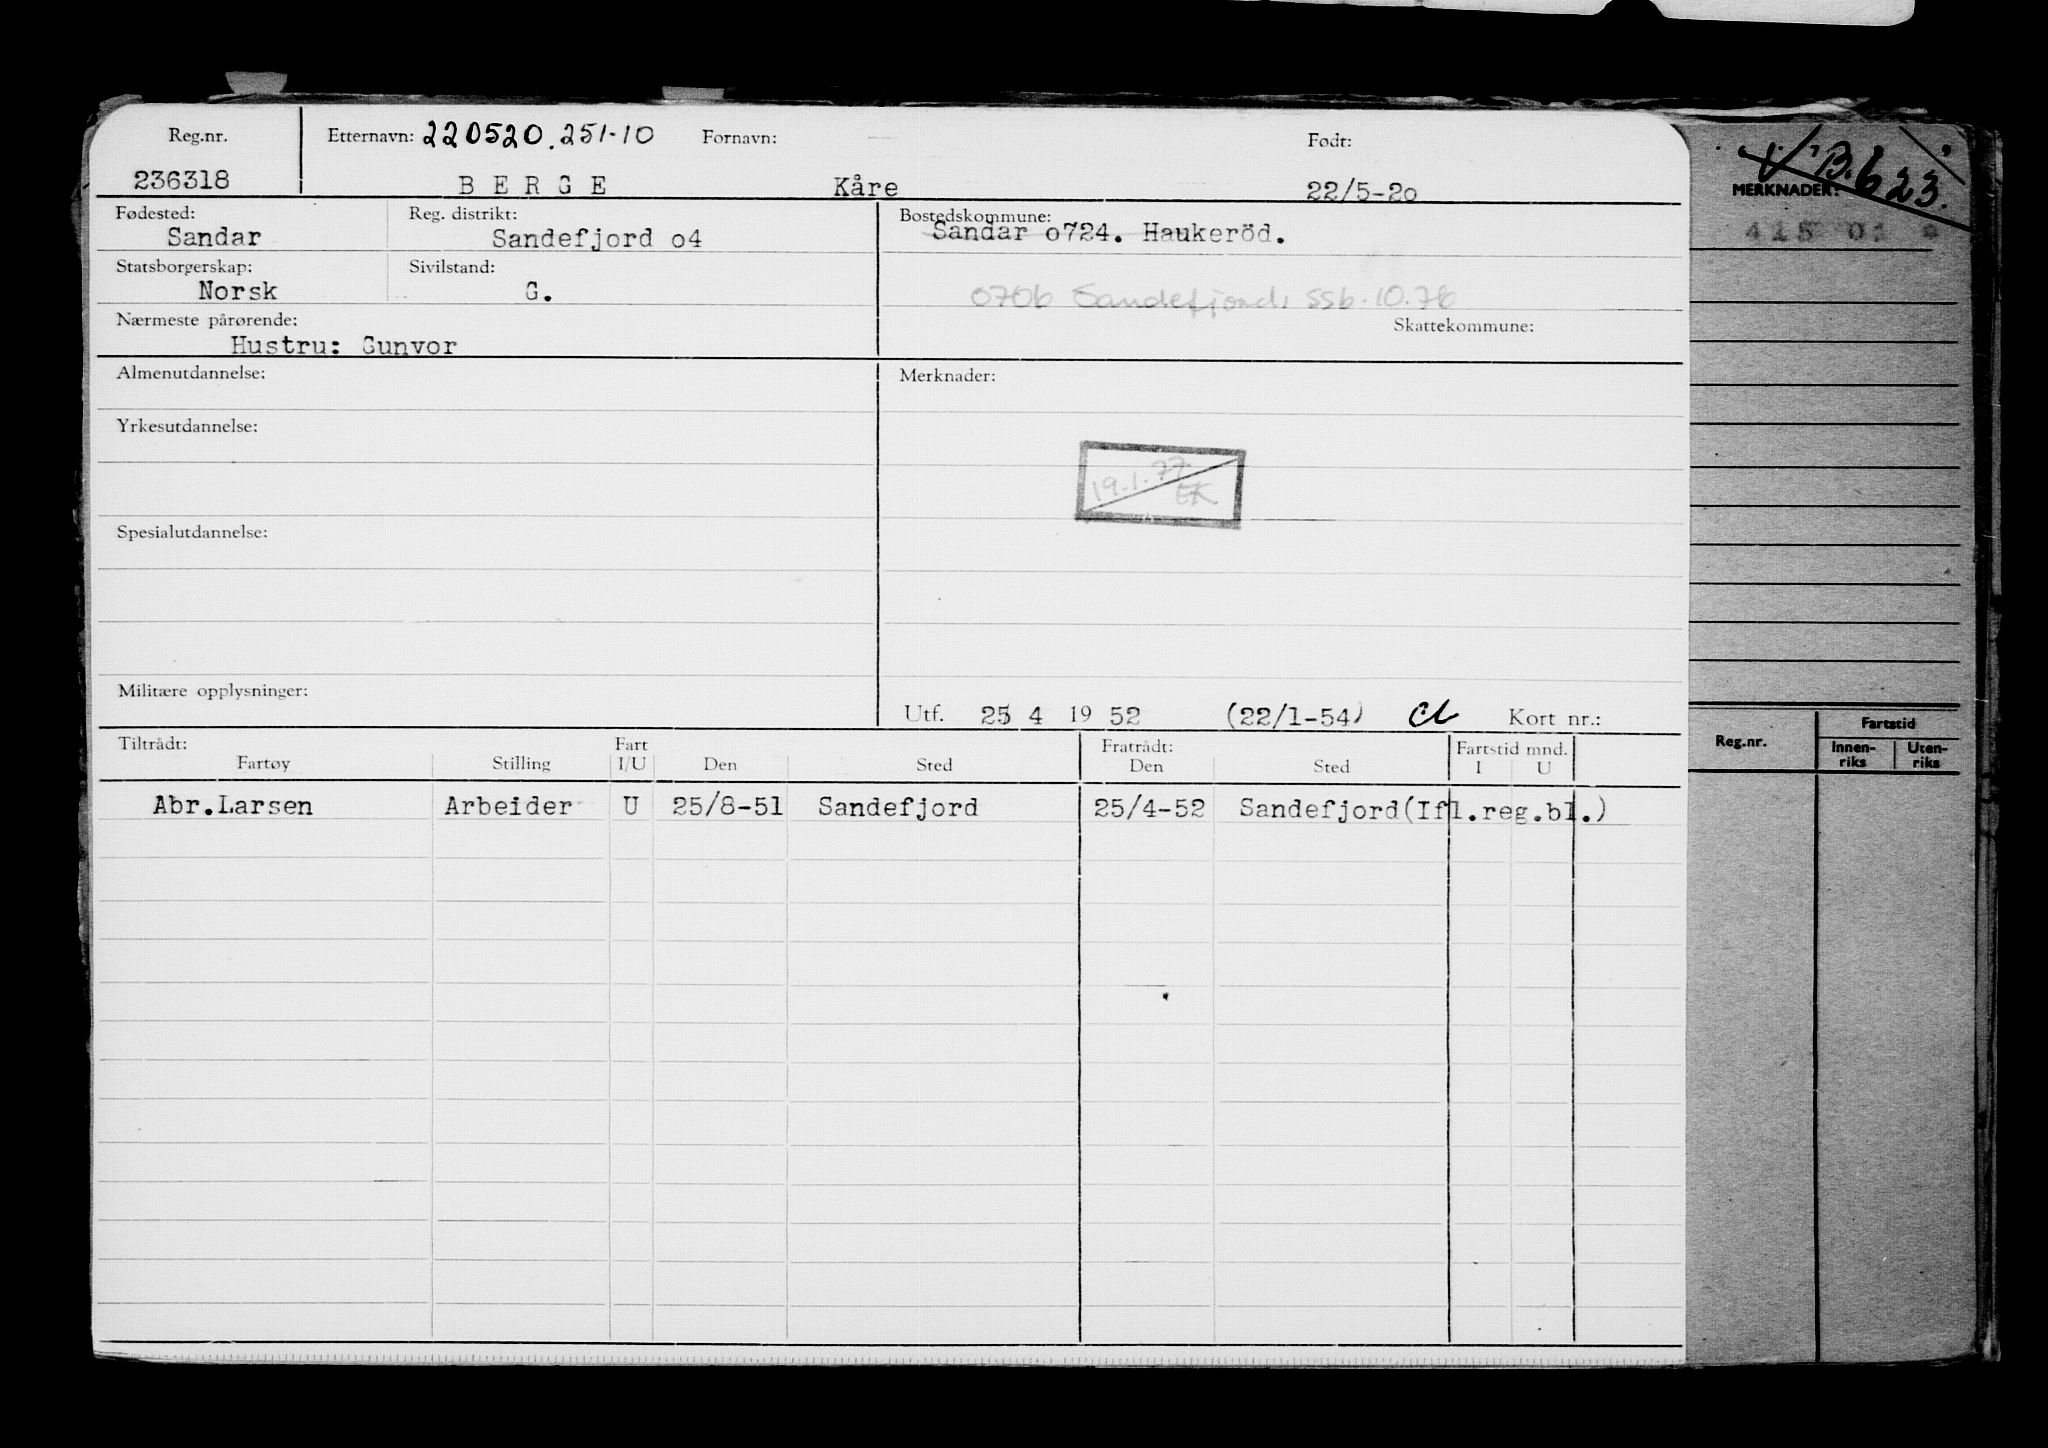 Reg.nr. Etternavn: 220520.251-10 Fornavn: Født:
236318 BERGE Kåre 22/5-2o
Fødested: Reg. distrikt: Bostedskommune:
Sandar Sandefjord o4 Sandar o724. Haukeröd.
Statsborgerskap: Sivilstand:
Norsk G. 0706 Sandefjord, SSb. 10.76
Nærmeste pårørende: Skattekommune:
Hustru: Gunvor
Almenutdannelse: Merknader:
Yrkesutdannelse:
19.1.77 EK
Spesialutdannelse:
Militære opplysninger:
Utf. 25 4 19 52 (22/1-54) Kort nr.:
Tiltrådt: Fart Fratrådt: Fartstid mnd.
Fartøy Stilling I/U Den Sted Den Sted I U
Abr.Larsen Arbeider U 25/8-51 Sandefjord 25/4-52 Sandefjord(Ifl.reg.bl.)
B.623.
MERKNADER:
415 01 *
Reg.nr. Fartstid
Innen-riks Uten-riks